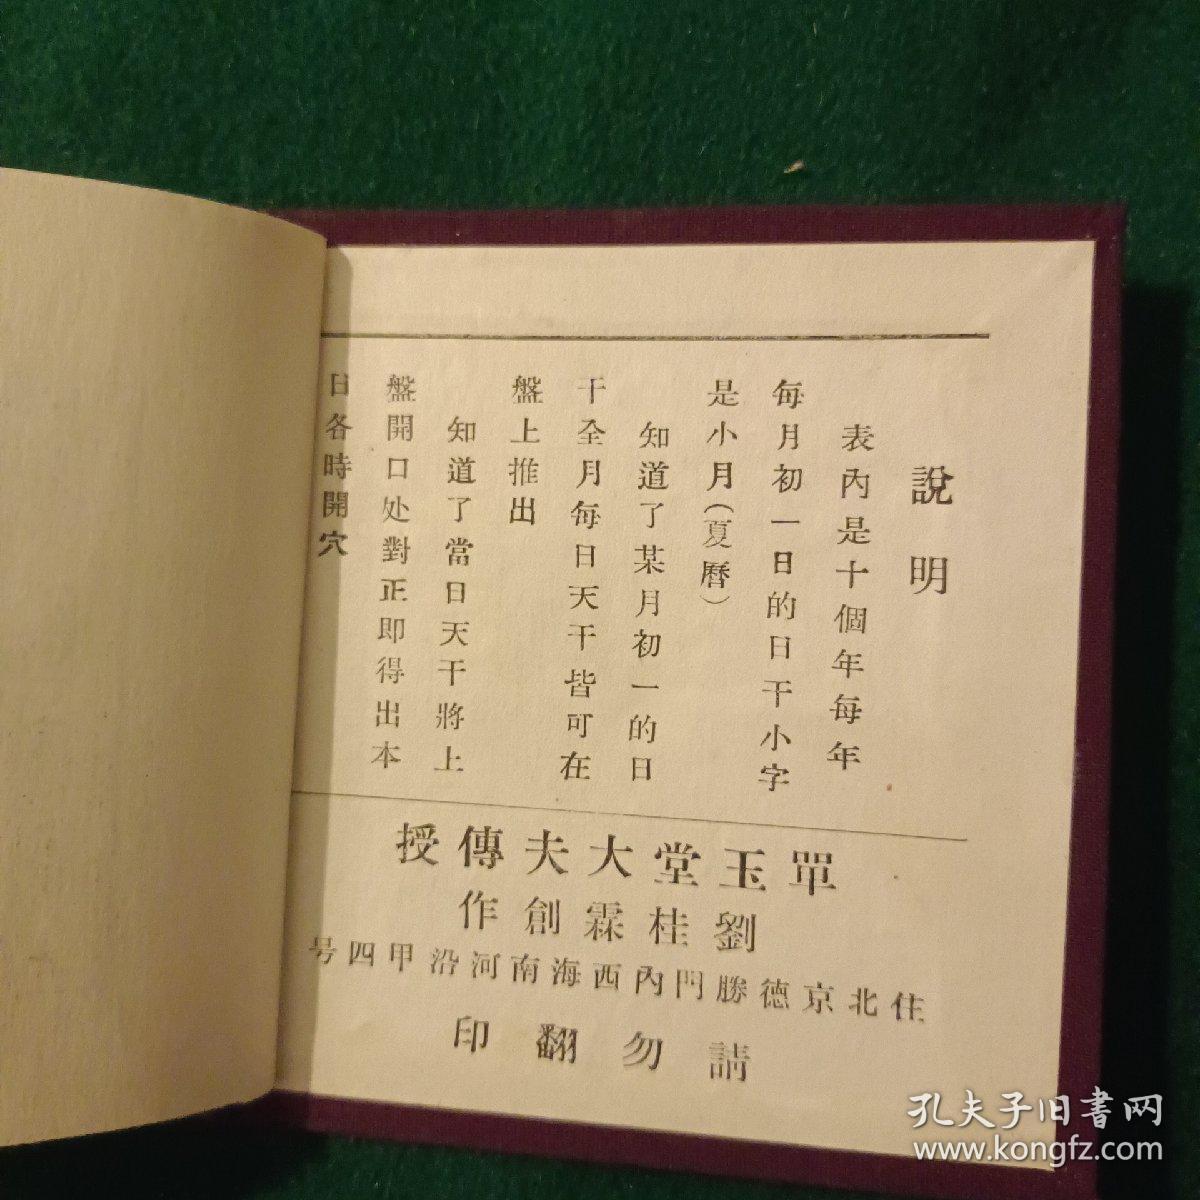 說明
表內是十個年每年
每月初一日的日干小字
是小月（夏曆）
知道了某月初一的日
干全月每日天干皆可在
盤上推出
知道了當日天干將上
盤開口处對正即得出本
日各時開穴
單玉堂大夫傳授
劉桂霖創作
住北京德勝門內西海南河沿甲四号
請勿翻印
孔夫子旧書网
www.kongfz.com